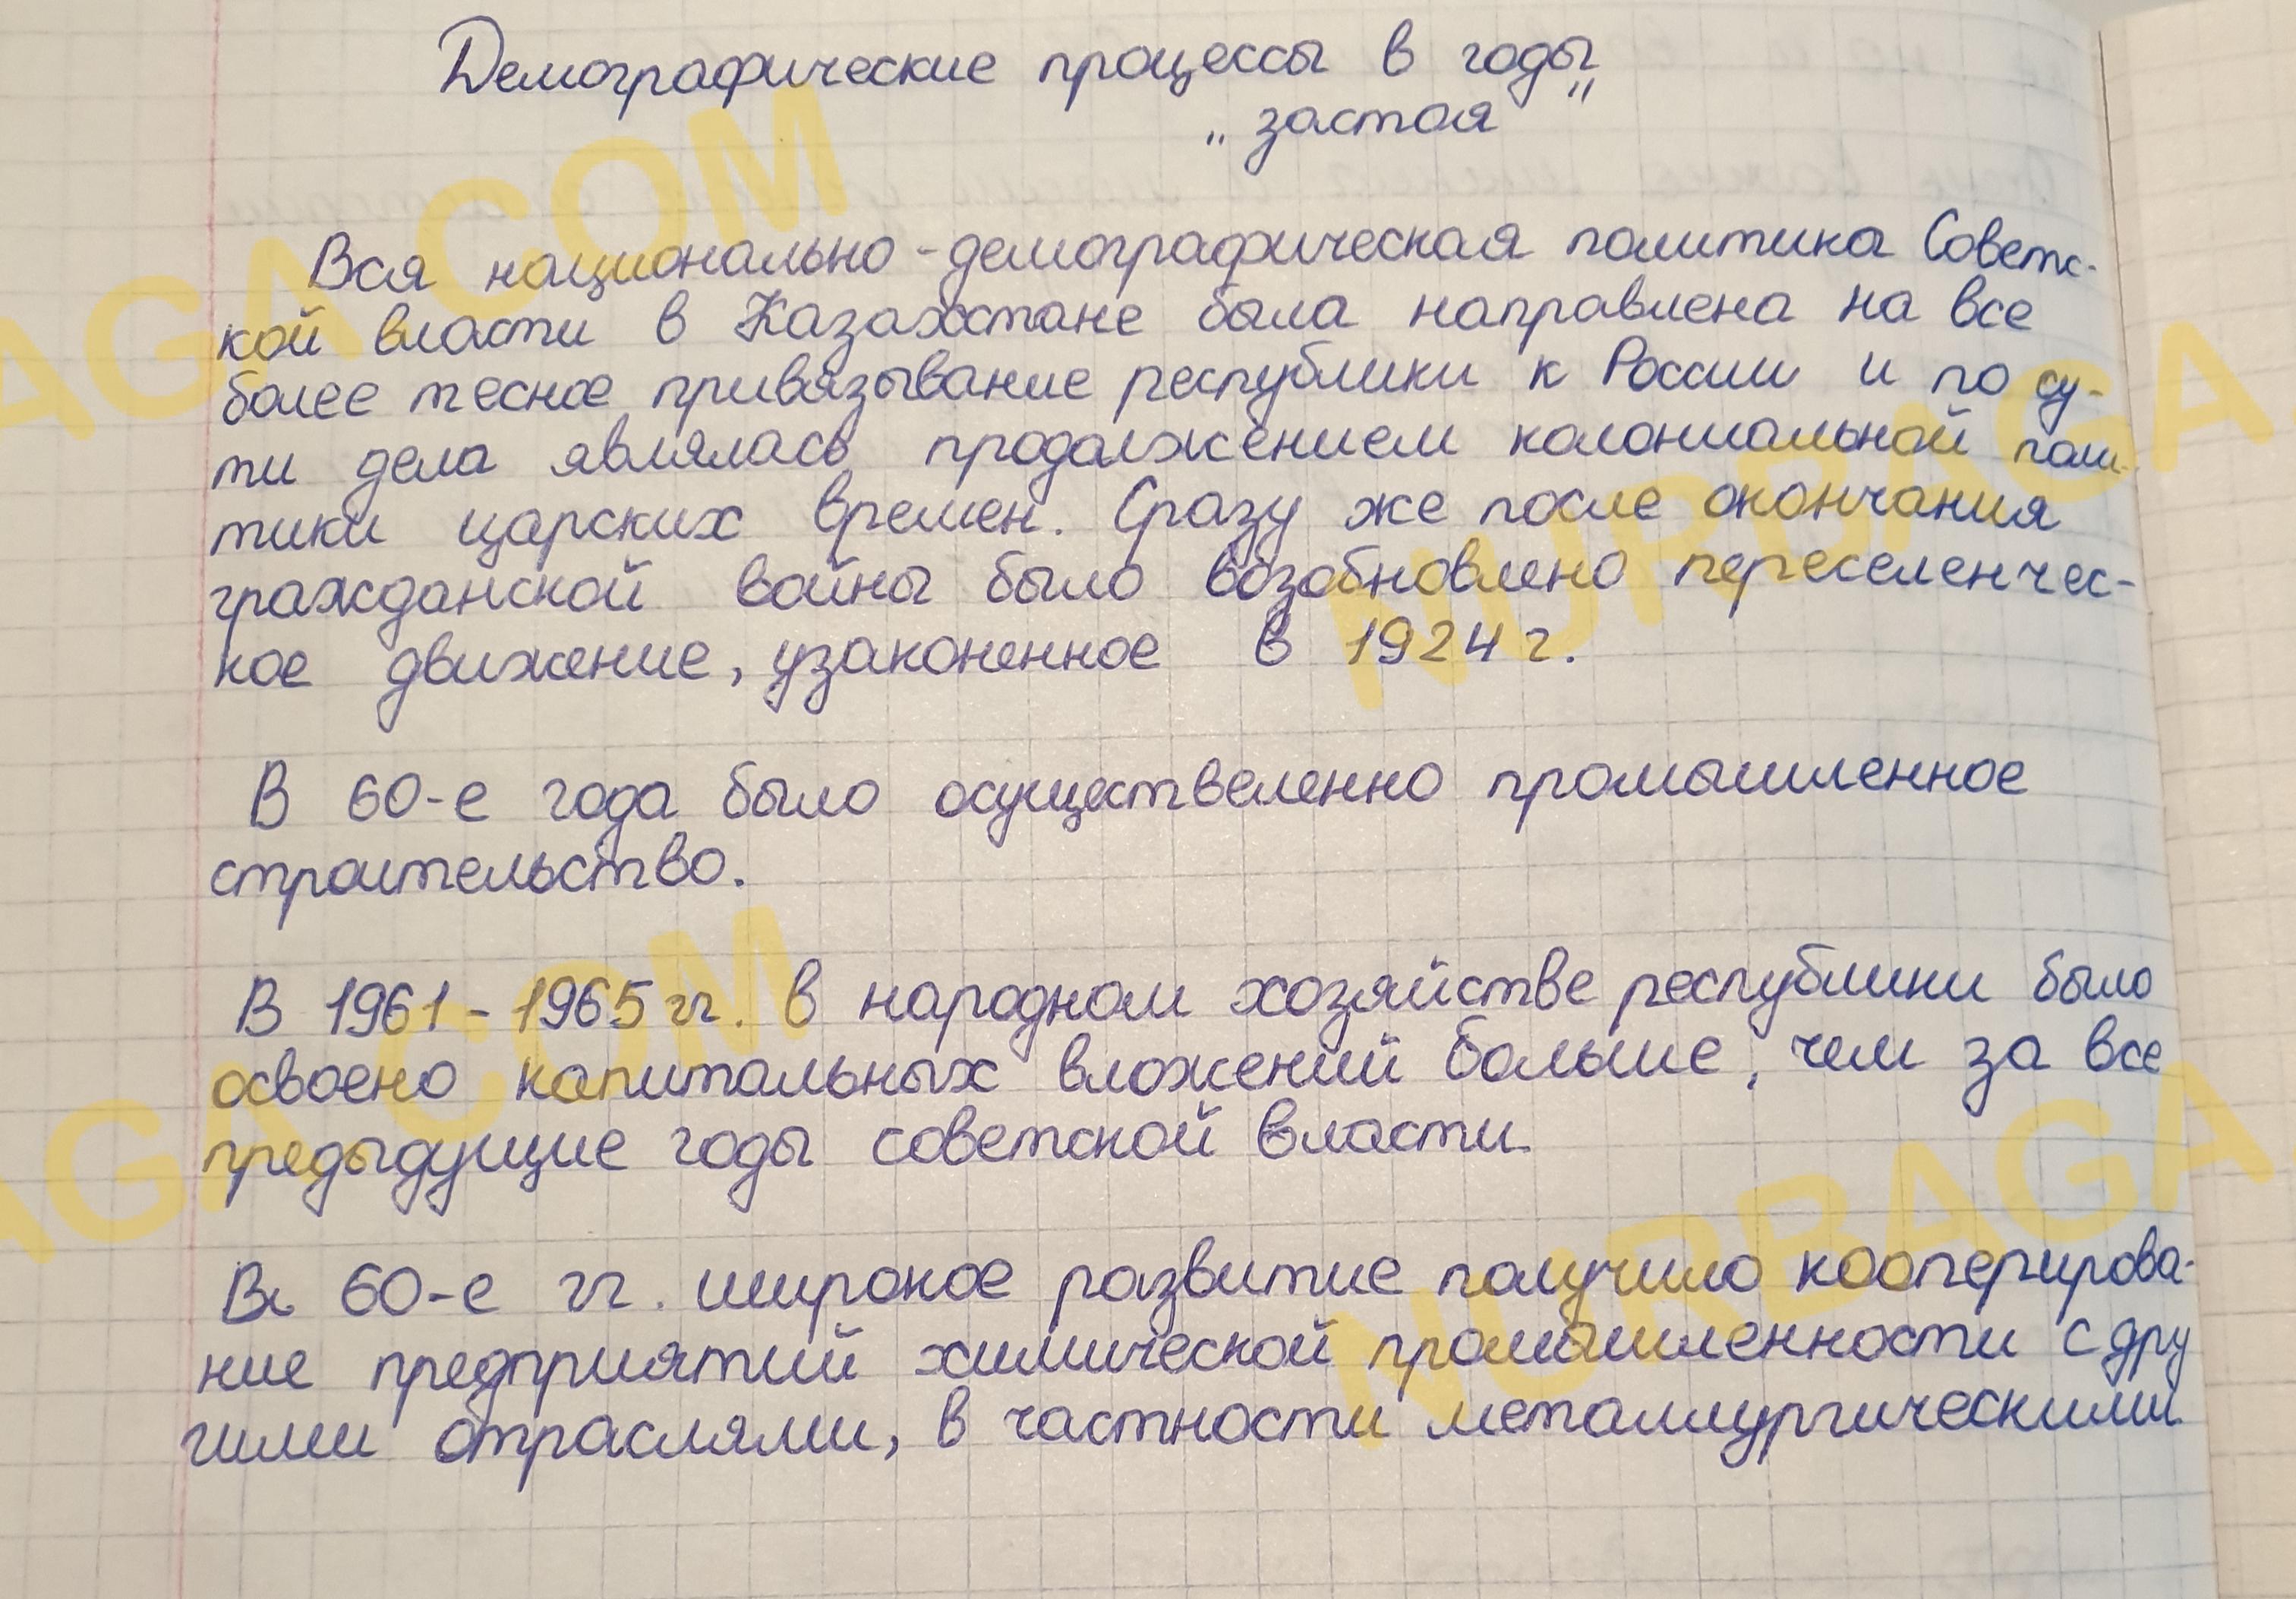 Демографические процессы в годы
„застоя"
Вся национально-демографическая политика Советс-
кой власти в Казахстане была направлена на все
более тесное привязывание республики к России и по су-
ти дела являлась продолжением колониальной поли-
тики царских времен. Сразу же после окончания
гражданской войны было возобновлено переселенчес-
кое движение, узаконенное в 1924 г.
В 60-е года было осуществеленно промышленное
строительство.
В 1961-1965 гг. в народном хозяйстве республики было
освоено капитальных вложений больше, чем за все
предыдущие годы советской власти.
В 60-е гг. широкое развитие получило кооперирова-
ние предприятий химической промышленности с дру
гими отраслями, в частности металлургическими
AGA.COM
NURBAGA
AGA.COM
NURBAGA.